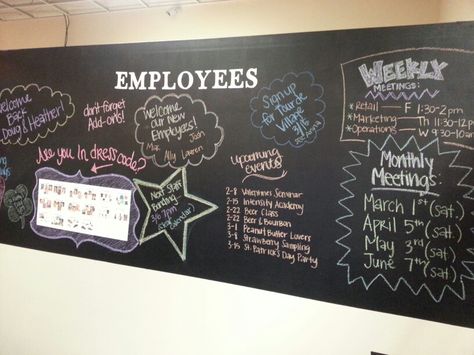 EMPLOYEES
Welcome
Back
Doug & Heather!
don't forget
Add-ons!
Welcome
our New
Employees!
Max Josh
Ally Lauren
Sign up
for Tour de
Village
3/15
Are you In dress code?
Next Staff
Bonding
3/6 7pm
upcoming
events
2-8 Valentines Seminar
2-15 Intensity Academy
2-22 Beer Class
2-22 Beer & Bourbon
3-1 Peanut Butter Lovers
3-8 Strawberry Sampling
3-15 St. Patrick's Day Party
Weekly
MEETINGS:
*Retail F 1:30-2pm
*Marketing Th 11:30-12
*Operations W 9:30-10
Monthly
Meetings:
March 1st (sat.)
April 5th (sat.)
May 3rd (sat)
June 7th (sat.)